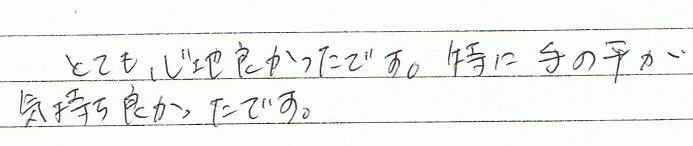 とても心地良かったです。特に手の平が
気持ち良かったです。